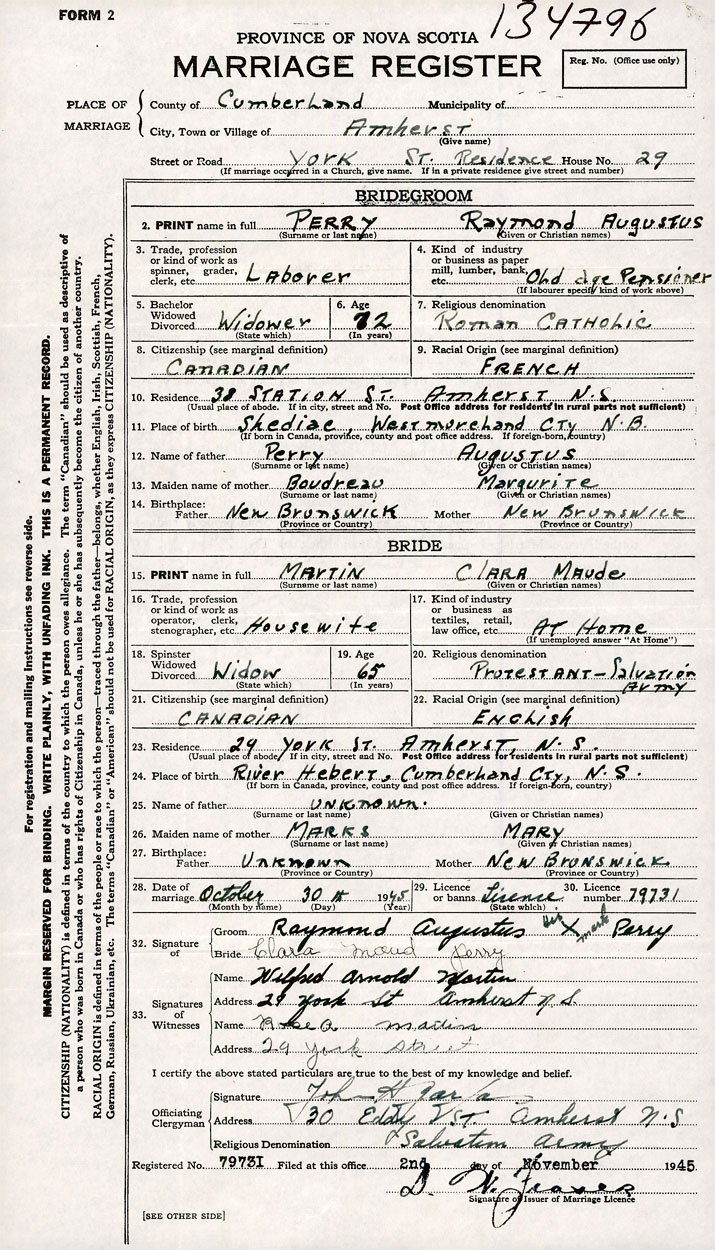 FORM 2
134796
PROVINCE OF NOVA SCOTIA
MARRIAGE REGISTER
Reg. No. (Office use only)
PLACE OF MARRIAGE
County of Cumberland Municipality of
City, Town or Village of Amherst
(Give name)
Street or Road York St. Residence House No. 29
(If marriage occurred in a Church, give name. If in a private residence give street and number)
BRIDEGROOM
2. PRINT name in full PERRY Raymond Augustus
(Surname or last name) (Given or Christian names)
3. Trade, profession or kind of work as spinner, grader, clerk, etc. Laborer
4. Kind of industry or business as paper mill, lumber, bank, etc. Old age Pensioner
(If labourer specify kind of work above)
5. Bachelor Widowed Divorced Widower
(State which)
6. Age 72
(In years)
7. Religious denomination Roman CATHOLIC
8. Citizenship (see marginal definition) CANADIAN
9. Racial Origin (see marginal definition) FRENCH
10. Residence 38 STATION ST. Amherst N.S.
(Usual place of abode. If in city, street and No. Post Office address for residents in rural parts not sufficient)
11. Place of birth Shediac, Westmoreland Cty N.B.
(If born in Canada, province, county and post office address. If foreign-born, country)
12. Name of father Perry Augustus
(Surname or last name) (Given or Christian names)
13. Maiden name of mother Boudreau Margurite
(Surname or last name) (Given or Christian names)
14. Birthplace: Father New Brunswick Mother New Brunswick
(Province or Country) (Province or Country)
BRIDE
15. PRINT name in full MARTIN CLARA Maude
(Surname or last name) (Given or Christian names)
16. Trade, profession or kind of work as operator, clerk, stenographer, etc. Housewife
17. Kind of industry or business as textiles, retail, law office, etc. AT Home
(If unemployed answer "At Home")
18. Spinster Widowed Divorced Widow
(State which)
19. Age 65
(In years)
20. Religious denomination PROTESTANT - Salvation Army
21. Citizenship (see marginal definition) CANADIAN
22. Racial Origin (see marginal definition) ENGLISH
23. Residence 29 York ST. Amherst, N.S.
(Usual place of abode. If in city, street and No. Post Office address for residents in rural parts not sufficient)
24. Place of birth River Hebert, Cumberland Cty, N.S.
(If born in Canada, province, county and post office address. If foreign-born, country)
25. Name of father UNKNOWN.
(Surname or last name) (Given or Christian names)
26. Maiden name of mother MARKS MARY
(Surname or last name) (Given or Christian names)
27. Birthplace: Father Unknown Mother New Brunswick
(Province or Country) (Province or Country)
28. Date of marriage October 30 1945
(Month by name) (Day) (Year)
29. Licence or banns Lisence
(State which)
30. Licence number 79731
32. Signature of
Groom Raymond Augustus his X mark Perry
Bride Clara Maud Perry
33. Signatures of Witnesses
Name Wilfred Arnold Martin
Address 29 York St Amherst N.S.
Name Martin
Address 29 York Street
I certify the above stated particulars are true to the best of my knowledge and belief.
Officiating Clergyman
Signature John H
Address 30 Eddy ST. Amherst N.S
Religious Denomination Salvation Army
Registered No. 79731 Filed at this office 2nd day of November 1945
D. W. Fraser
Signature of Issuer of Marriage Licence
[SEE OTHER SIDE]
For registration and mailing instructions see reverse side.
MARGIN RESERVED FOR BINDING. WRITE PLAINLY, WITH UNFADING INK. THIS IS A PERMANENT RECORD.
CITIZENSHIP (NATIONALITY) is defined in terms of the country to which the person owes allegiance. The term "Canadian" should be used as descriptive of
a person who was born in Canada or who has rights of Citizenship in Canada, unless he or she has subsequently become the citizen of another country.
RACIAL ORIGIN is defined in terms of the people or race to which the person—traced through the father—belongs, whether English, Irish, Scottish, French,
German, Russian, Ukrainian, etc. The terms "Canadian" or "American" should not be used for RACIAL ORIGIN, as they express CITIZENSHIP (NATIONALITY).